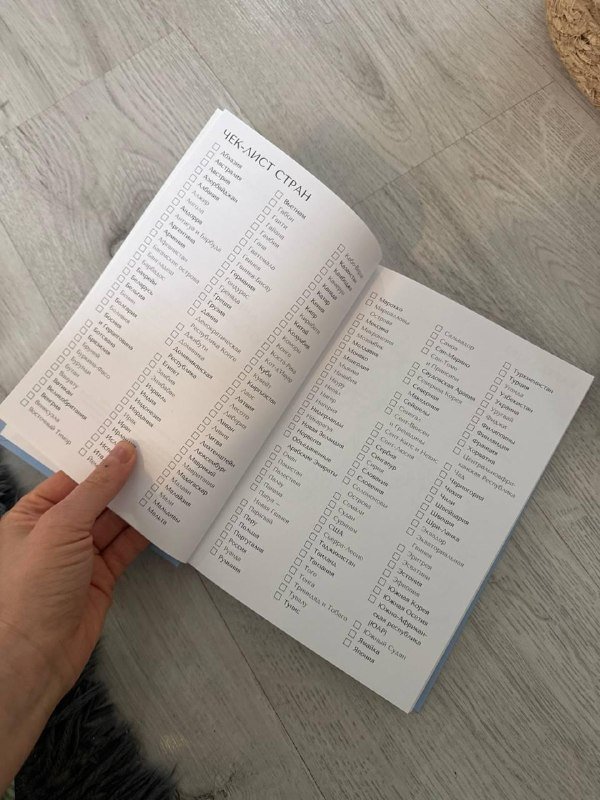 ЧЕК-ЛИСТ СТРАН
Абхазия
Австралия
Австрия
Азербайджан
Албания
Алжир
Ангола
Андорра
Антигуа и Барбуда
Аргентина
Армения
Афганистан
Багамские острова
Бангладеш
Барбадос
Бахрейн
Беларусь
Бельгия
Бенин
Болгария
Боливия
Босния
и Герцеговина
Ботсвана
Бразилия
Бруней
Буркина-Фасо
Бурунди
Бутан
Вануату
Ватикан
Великобритания
Венгрия
Венесуэла
Восточный Тимор
Вьетнам
Габон
Гаити
Гайана
Гамбия
Гана
Гватемала
Гвинея
Гвинея-Бисау
Германия
Гондурас
Гренада
Греция
Грузия
Дания
Демократическая
Республика Конго
Джибути
Доминика
Доминиканская
Республика
Египет
Замбия
Зимбабве
Израиль
Индия
Индонезия
Иордания
Ирак
Иран
Кабо-Верде
Казахстан
Камбоджа
Камерун
Канада
Катар
Кения
Кипр
Кирибати
Китай
Колумбия
Коморы
Конго
Косово
Коста-Рика
Кот-д'Ивуар
Куба
Кувейт
Кыргызстан
Лаос
Латвия
Лесото
Либерия
Ливан
Ливия
Литва
Лихтенштейн
Люксембург
Маврикий
Мавритания
Мадагаскар
Малави
Малайзия
Мали
Мальдивы
Мальта
Марокко
Маршалловы
Острова
Мексика
Мозамбик
Молдавия
Монако
Монголия
Мьянма
Намибия
Науру
Непал
Нигер
Нигерия
Нидерланды
Никарагуа
Новая Зеландия
Норвегия
Объединенные
Арабские Эмираты
Оман
Пакистан
Палау
Палестина
Панама
Папуа —
Новая Гвинея
Парагвай
Перу
Польша
Португалия
Россия
Руанда
Румыния
Сальвадор
Самоа
Сан-Марино
Сан-Томе
и Принсипи
Саудовская Аравия
Северная Корея
Северная
Македония
Сейшелы
Сенегал
Сент-Винсент
и Гренадины
Сент-Китс и Невис
Сент-Люсия
Сербия
Сингапур
Сирия
Словакия
Словения
Соломоновы
Острова
Сомали
Судан
Суринам
США
Сьерра-Леоне
Таджикистан
Таиланд
Танзания
Того
Тонга
Тринидад и Тобаго
Тувалу
Тунис
Туркменистан
Турция
Уганда
Узбекистан
Украина
Уругвай
Фиджи
Филиппины
Финляндия
Франция
Хорватия
Центральноафри-
канская Республика
Чад
Черногория
Чехия
Чили
Швейцария
Швеция
Шри-Ланка
Эквадор
Экваториальная
Гвинея
Эритрея
Эсватини
Эстония
Эфиопия
Южная Корея
Южная Осетия
Южно-Африкан-
ская республика
(ЮАР)
Южный Судан
Ямайка
Япония